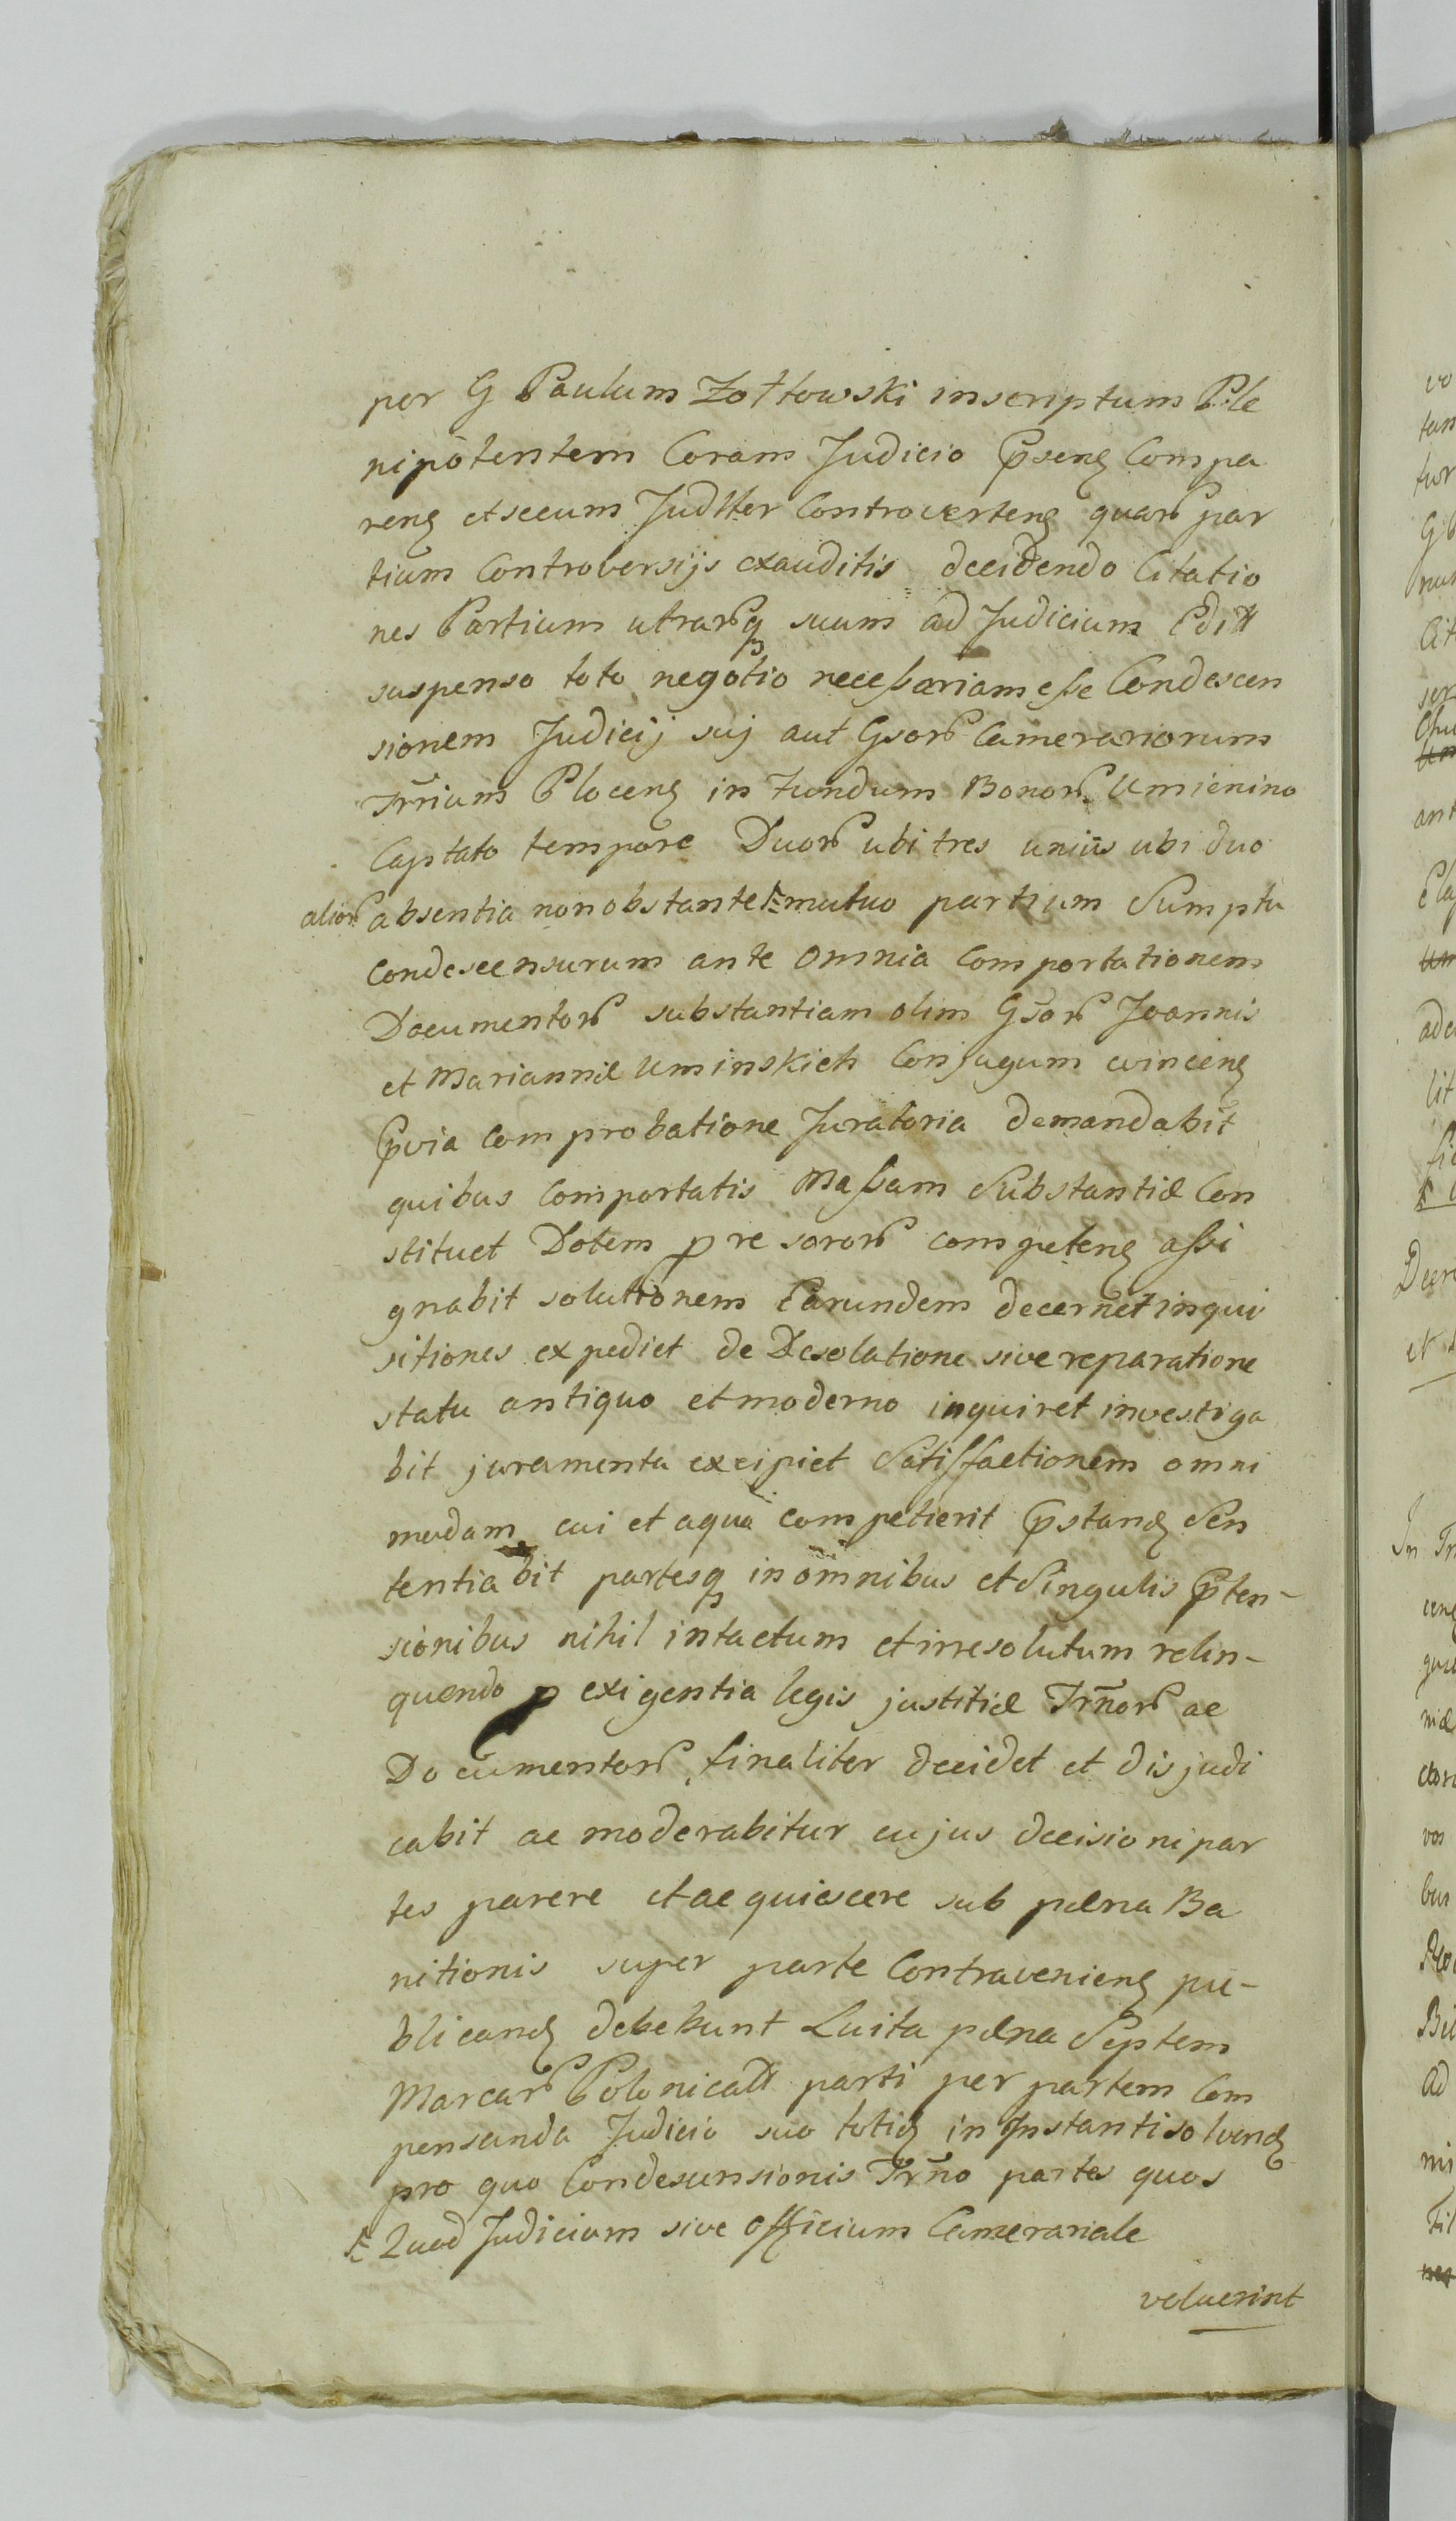 per G Paulum Zołtowski inscriptum Ple
nipotentem Coram Judicio Pñseng Compa
reng et secum Judllter Controverteng quarꝝ par
tium Controversijs exauditis decidendo Citatio
nes Partium utrarꝝq suum ad Judicium Editt
suspenso toto negotio necessariam esse Condescen
sionem Judicij suj aut Gsorꝝ Camerariorum
Trñium Ploceng in Fundum Bonorꝝ Umienino
Captato tempore Duorꝝ ubi tres unius ubi duo
aliorꝝ absentia non obstante mutuo partium Sumptu
condescensurum ante omnia Comportationem
Documentorꝝ substantiam olim Gsorꝝ Joannis
et Mariannæ Uminskich Conjugum evinceng
Pvia Comprobatione Juratoria demandabit
quibus Comportatis Massam Substantiæ Con
stituet Dotem p re sororꝝ competeng assi
gnabit solutionem Earundem decernet inqui
sitiones expediet de Desolatione sive reparatione
statu antiquo et moderno inquiret investiga
bit juramenta excipiet Satisfactionem omni
modam cui et aqua Competierit Pstandg Sen
tentiabit partesq in omnibus et Singulis Pten-
sionibus nihil intactum et irresolutum relin-
quendo p exigentia legis justitiæ Trñorꝝ ac
Documentorꝝ finaliter decidet et disjudi
cabit ac moderabitur cujus decisioni par
tes parere et acquiescere sub pæna Ba
nitionis super parte Contravenieng pu-
blicandg debebunt Luita pæna Septem
Marcarꝝ Polonicall parti per partem Com
pensanda Judicio suo totidg in Instanti solvendg
pro quo Condescensionis Trño partes quos
Quod Judicium sive officium Camerariale
voluerint